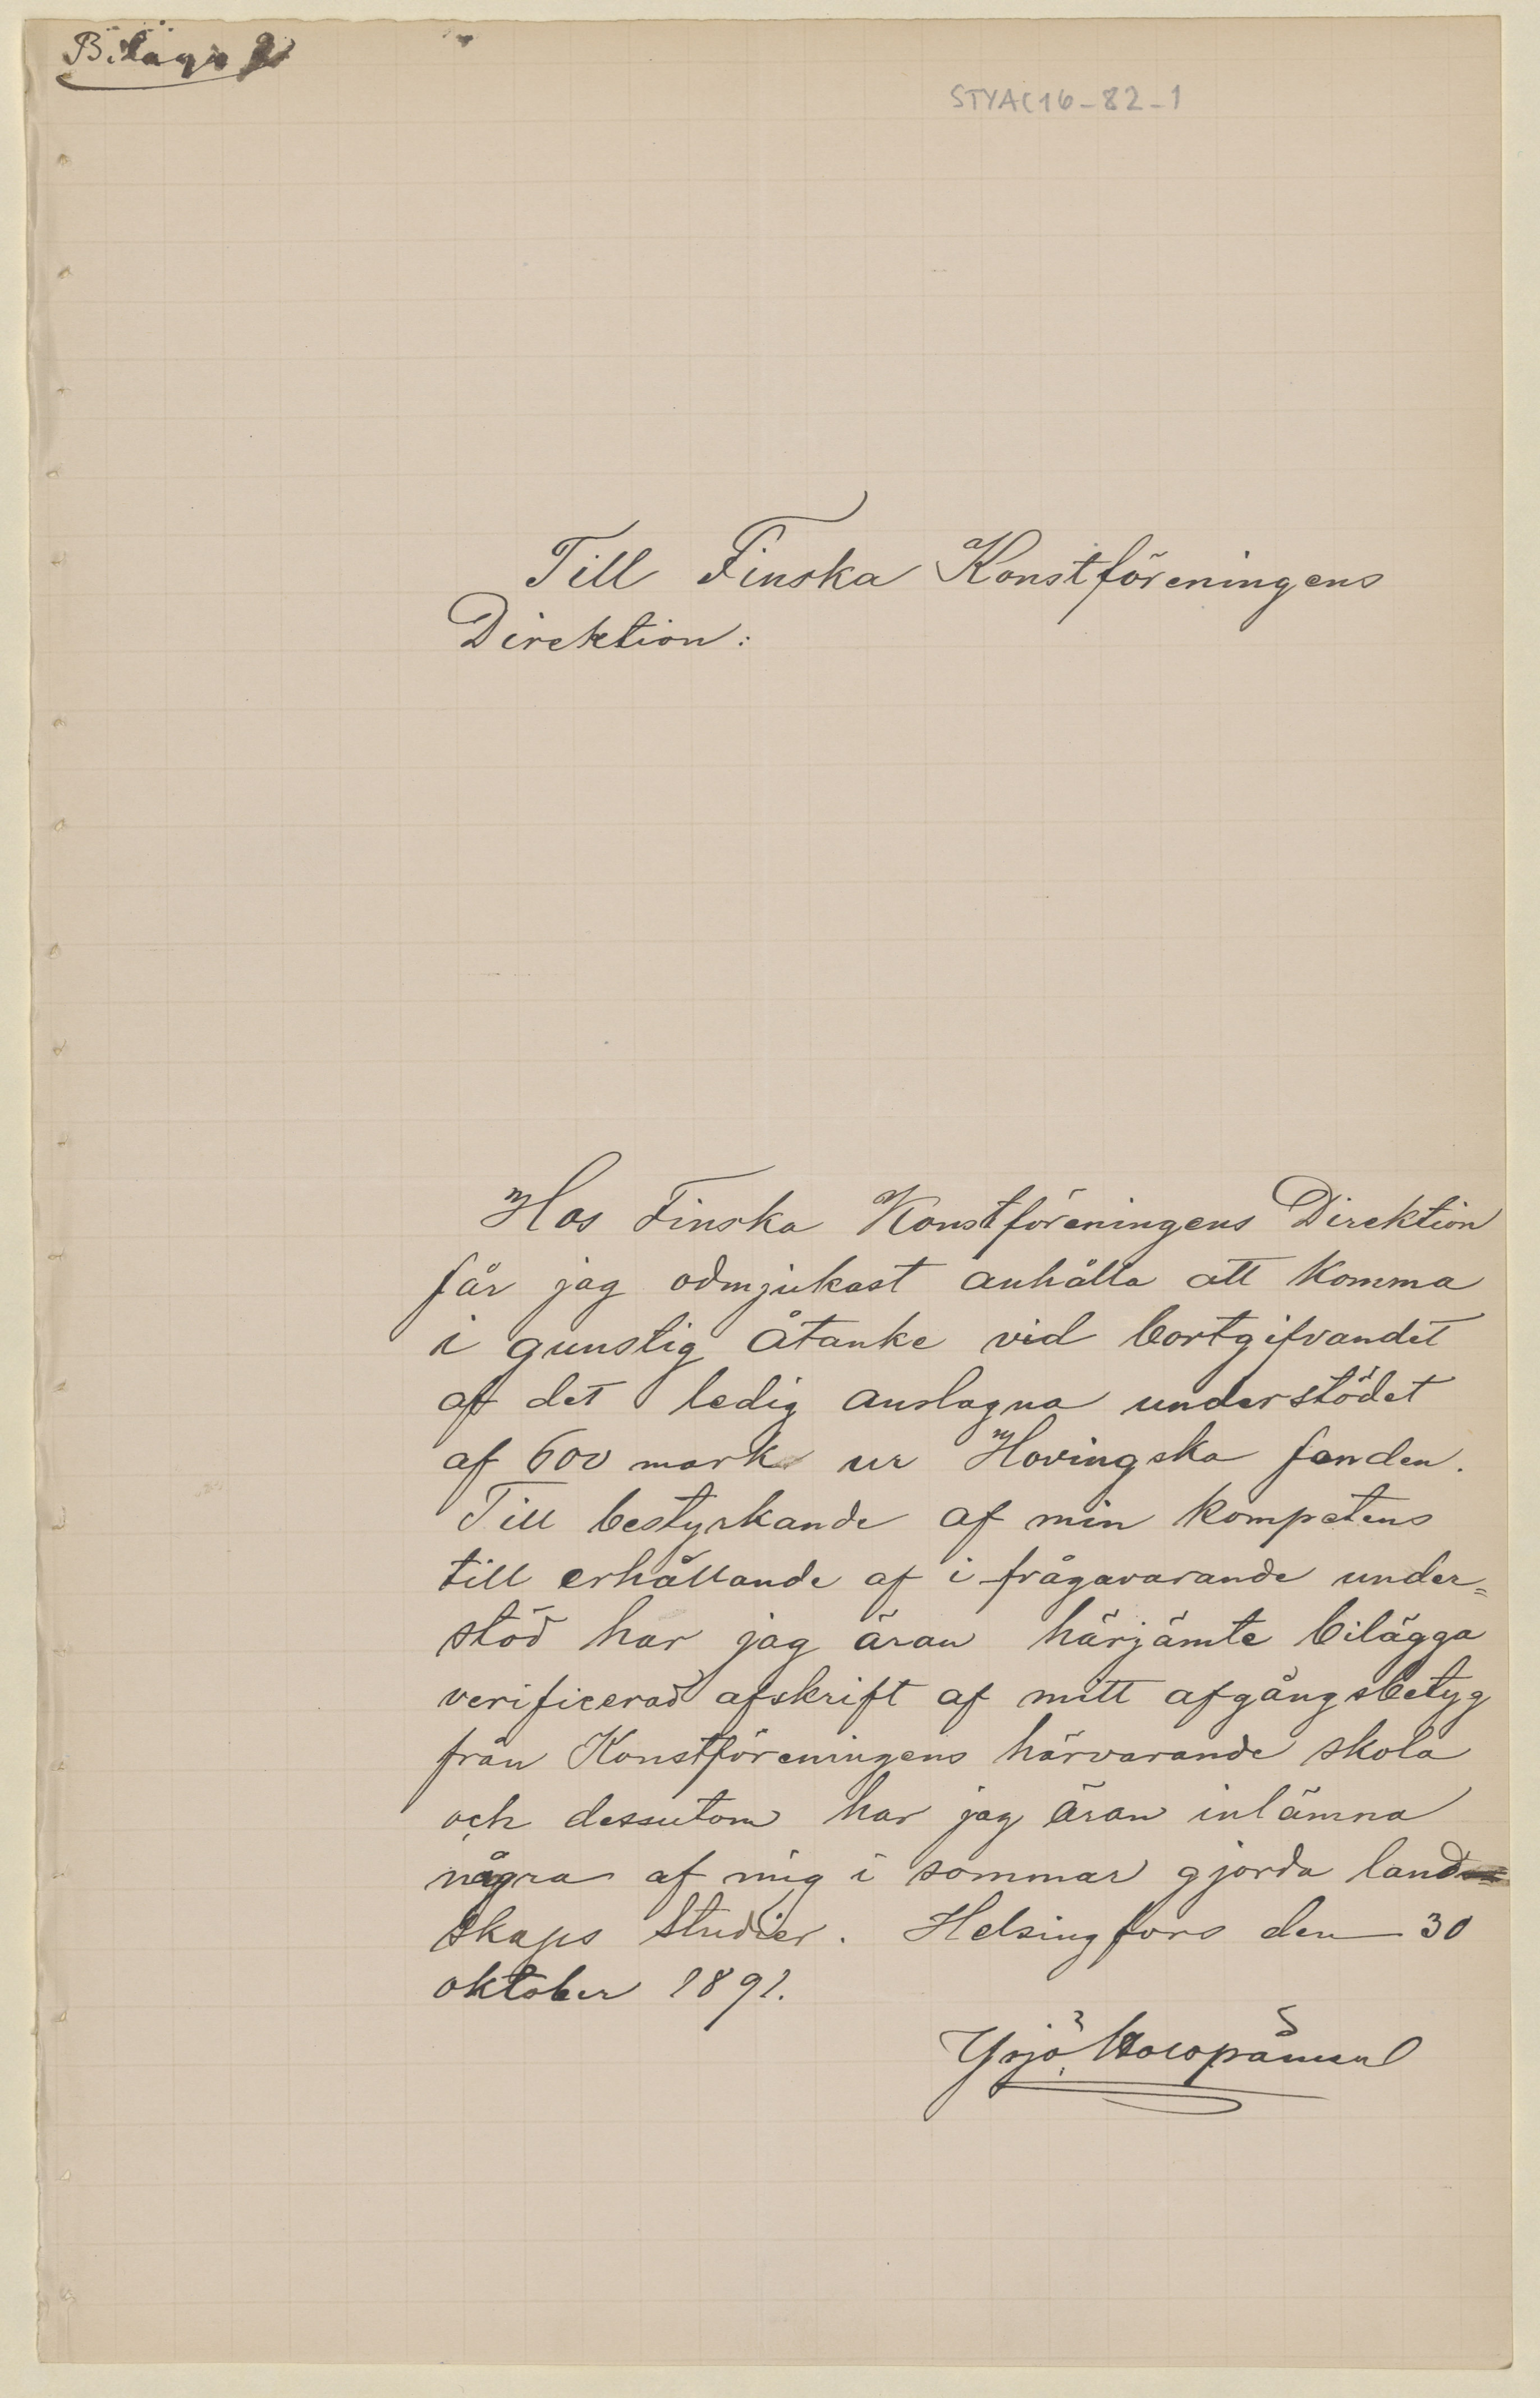 Bilaga 2
STYA C16-82-1
Till Finska Konstföreningens
Direktion:
Hos Finska Konstföreningens Direktion
får jag ödmjukast anhålla att komma
i gunstig åtanke vid bortgifvandet
af det ledig anslagna understödet
af 600 mark ur Hovingska fonden.
Till bestyrkande af min kompetens
till erhållande af i frågavarande under=
stöd har jag äran härjämte bilägga
verificerad afskrift af mitt afgångsbetyg
från Konstföreningens härvarande skola
och dessutom har jag äran inlämna
några af mig i sommar gjorda land
skaps studier. Helsingfors den 30
oktober 1891.
Yrjö